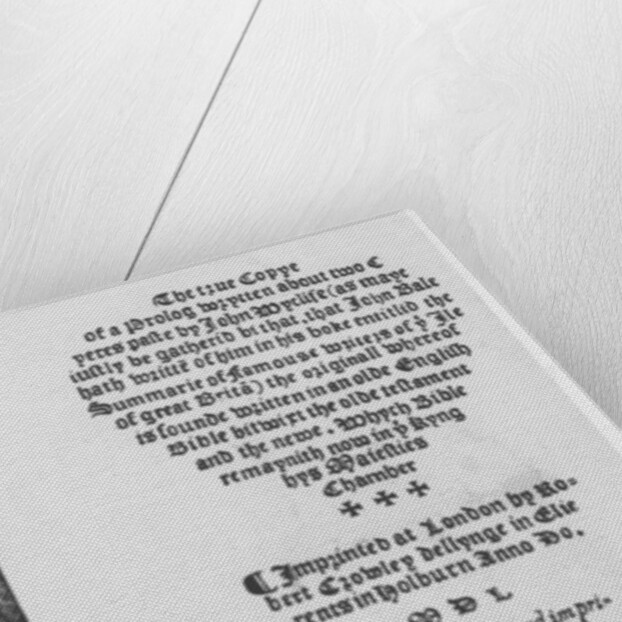 The true Copye
of a Prolog wrytten about two C
yeres paste by John Wyclife (as maye
iustly be gatherid bi that, that John Bale
hath writtē of him in his boke entitlid the
Summarie of famouse writers of ẏ Ile
of great Britā) the originall whereof
is founde written in an olde English
Bible bitwixt the olde testament
and the newe. Whych Bible
remaynith now in ẏ Kyng
hys Maiesties
Chamber
✠ ✠ ✠
¶ Imprinted at London by Ro-
bert Crowley dellynge in Elie
rents in Holburn Anno Do.
M D L
impri-